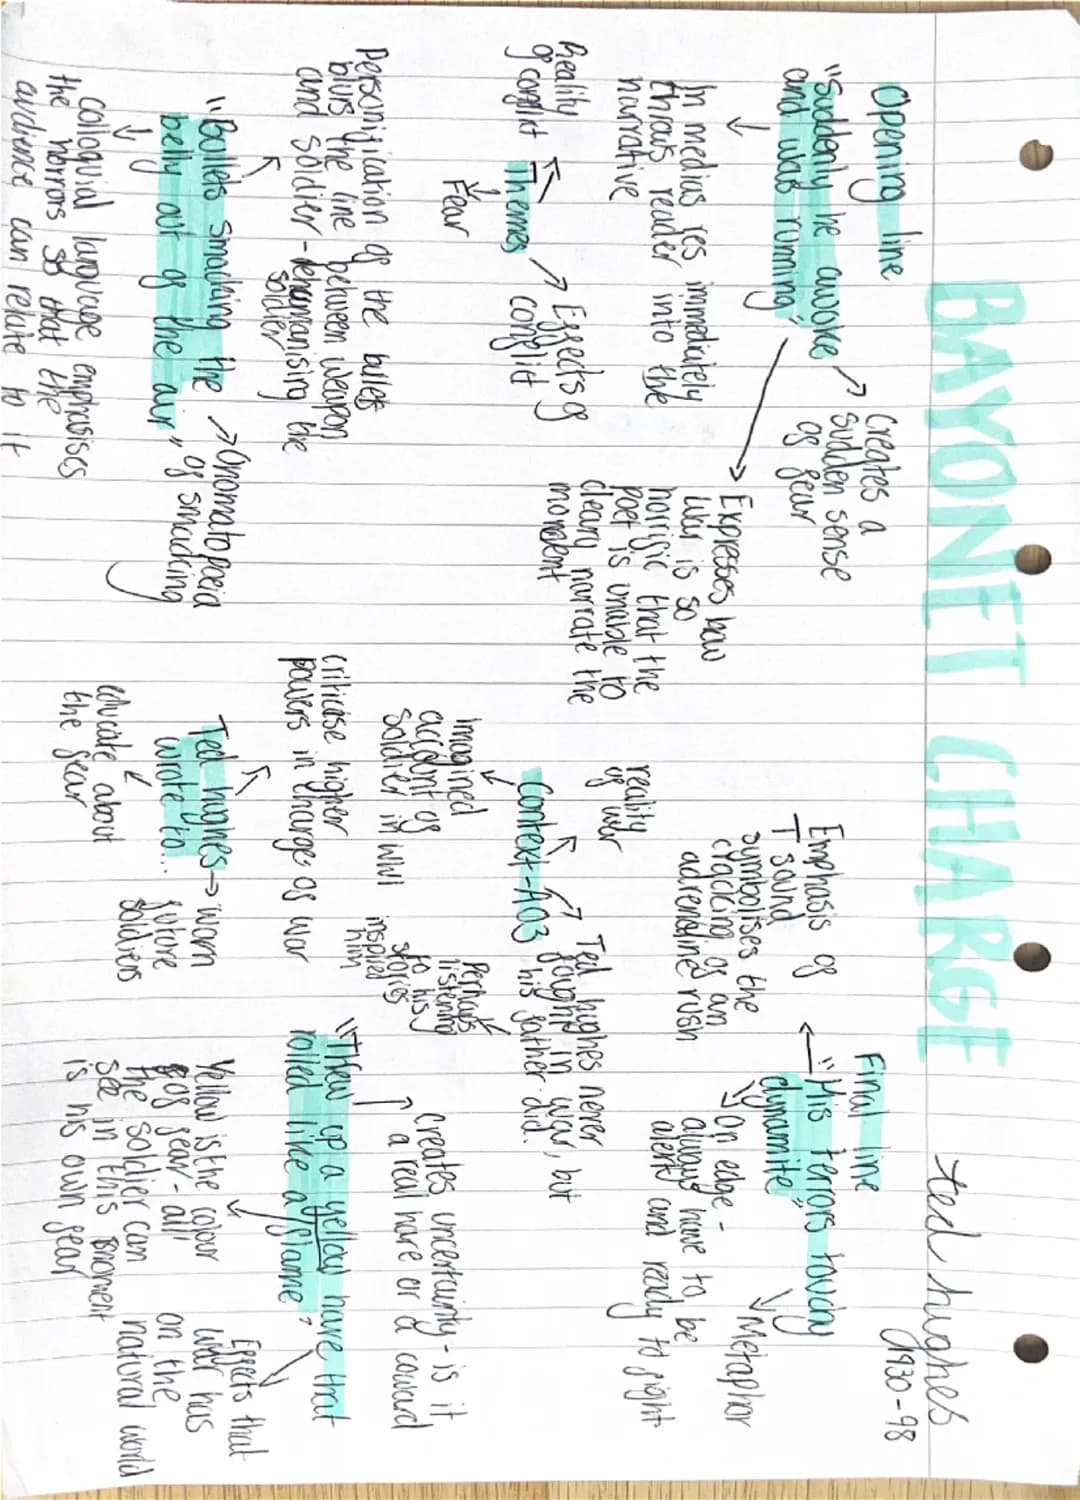 BAYONET CHARGE
ted hughes
1930-98
Opening line
"Suddenly he awoke
and was running"
creates a
sudden sense
of fear
In medias res immediately
throws reader into the
narrative
Expresses how
war is so
horrific that the
poet is unable to
clearly narrate the
moment
Reality
of conflict
Themes
Fear
Effects of
conflict
Personification of the bullets
blurs the line between weapon
and soldier - dehumanising the
soldier
"Bullets smacking the
belly out of the air"
Onomatopoeia
of smacking
Colloquial language emphasises
the horrors so that the
audience can relate to it
Final line
"His terrors touchy
dynamite"
Emphasis of
T sound
symbolises the
cracking of an
adrenaline rush
Metaphor
On edge -
always have to be
alert and ready to fight
reality
of war
Context - AO3
Ted hughes never
fought in war, but
his father did.
Perhaps
listening
to his
stories
inspired
him
imagined
account of
soldier in WW1
criticise higher
powers in charge of war
Ted hughes
wrote to...
warn
future
soldiers
educate about
the fear
creates uncertainty - is it
a real hare or a coward
"Threw up a yellow hare that
rolled like a flame"
Yellow is the colour
of fear - all
the soldier can
see in this moment
is his own fear
Effects that
war has
on the
natural world